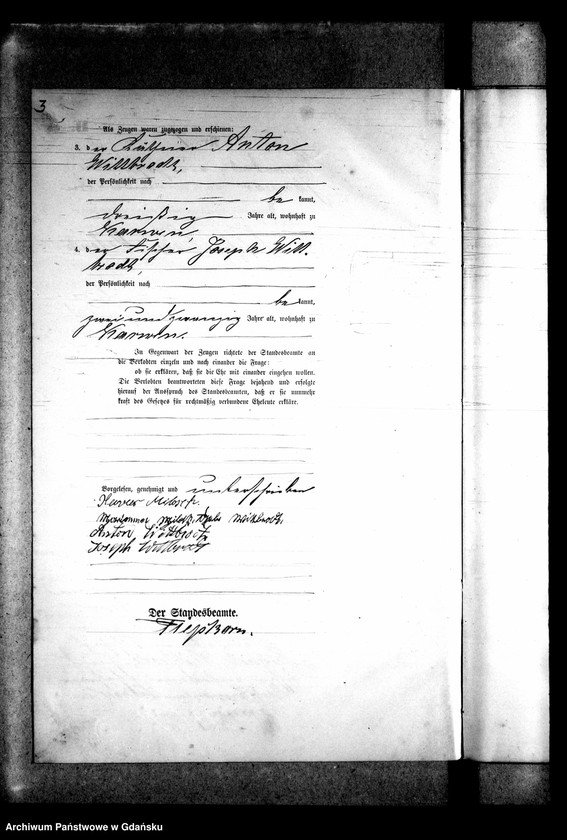 3
Als Zeugen waren zugezogen und erschienen:
3. der Anton
Wittbrodt,
der Persönlichkeit nach
be kannt,
dreißig Jahre alt, wohnhaft zu
Karwen,
4. der Fischer Joseph Witt-
brodt,
der Persönlichkeit nach
be kannt,
zwei und zwanzig Jahre alt, wohnhaft zu
Karwen.
In Gegenwart der Zeugen richtete der Standesbeamte an
die Verlobten einzeln und nach einander die Frage:
ob sie erklären, daß sie die Ehe mit einander eingehen wollen.
Die Verlobten beantworteten diese Frage bejahend und erfolgte
hierauf der Ausspruch des Standesbeamten, daß er sie nunmehr
kraft des Gesetzes für rechtmäßig verbundene Eheleute erkläre.
Vorgelesen, genehmigt und unterschrieben
Anton Wittbrodt
Joseph Wittbrodt
Der Standesbeamte.
Archiwum Państwowe w Gdańsku